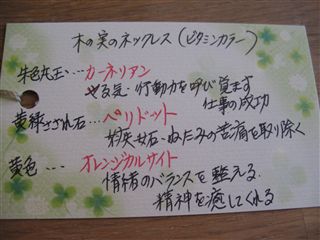 木の実のネックレス(ビタミンカラー)
朱色丸玉…カーネリアン
やる気・行動力を呼び覚ます
仕事の成功
黄緑さざれ石…ペリドット
嫉妬・ねたみの苦痛を取り除く
黄色…オレンジカルサイト
情緒のバランスを整える。
精神を癒してくれる